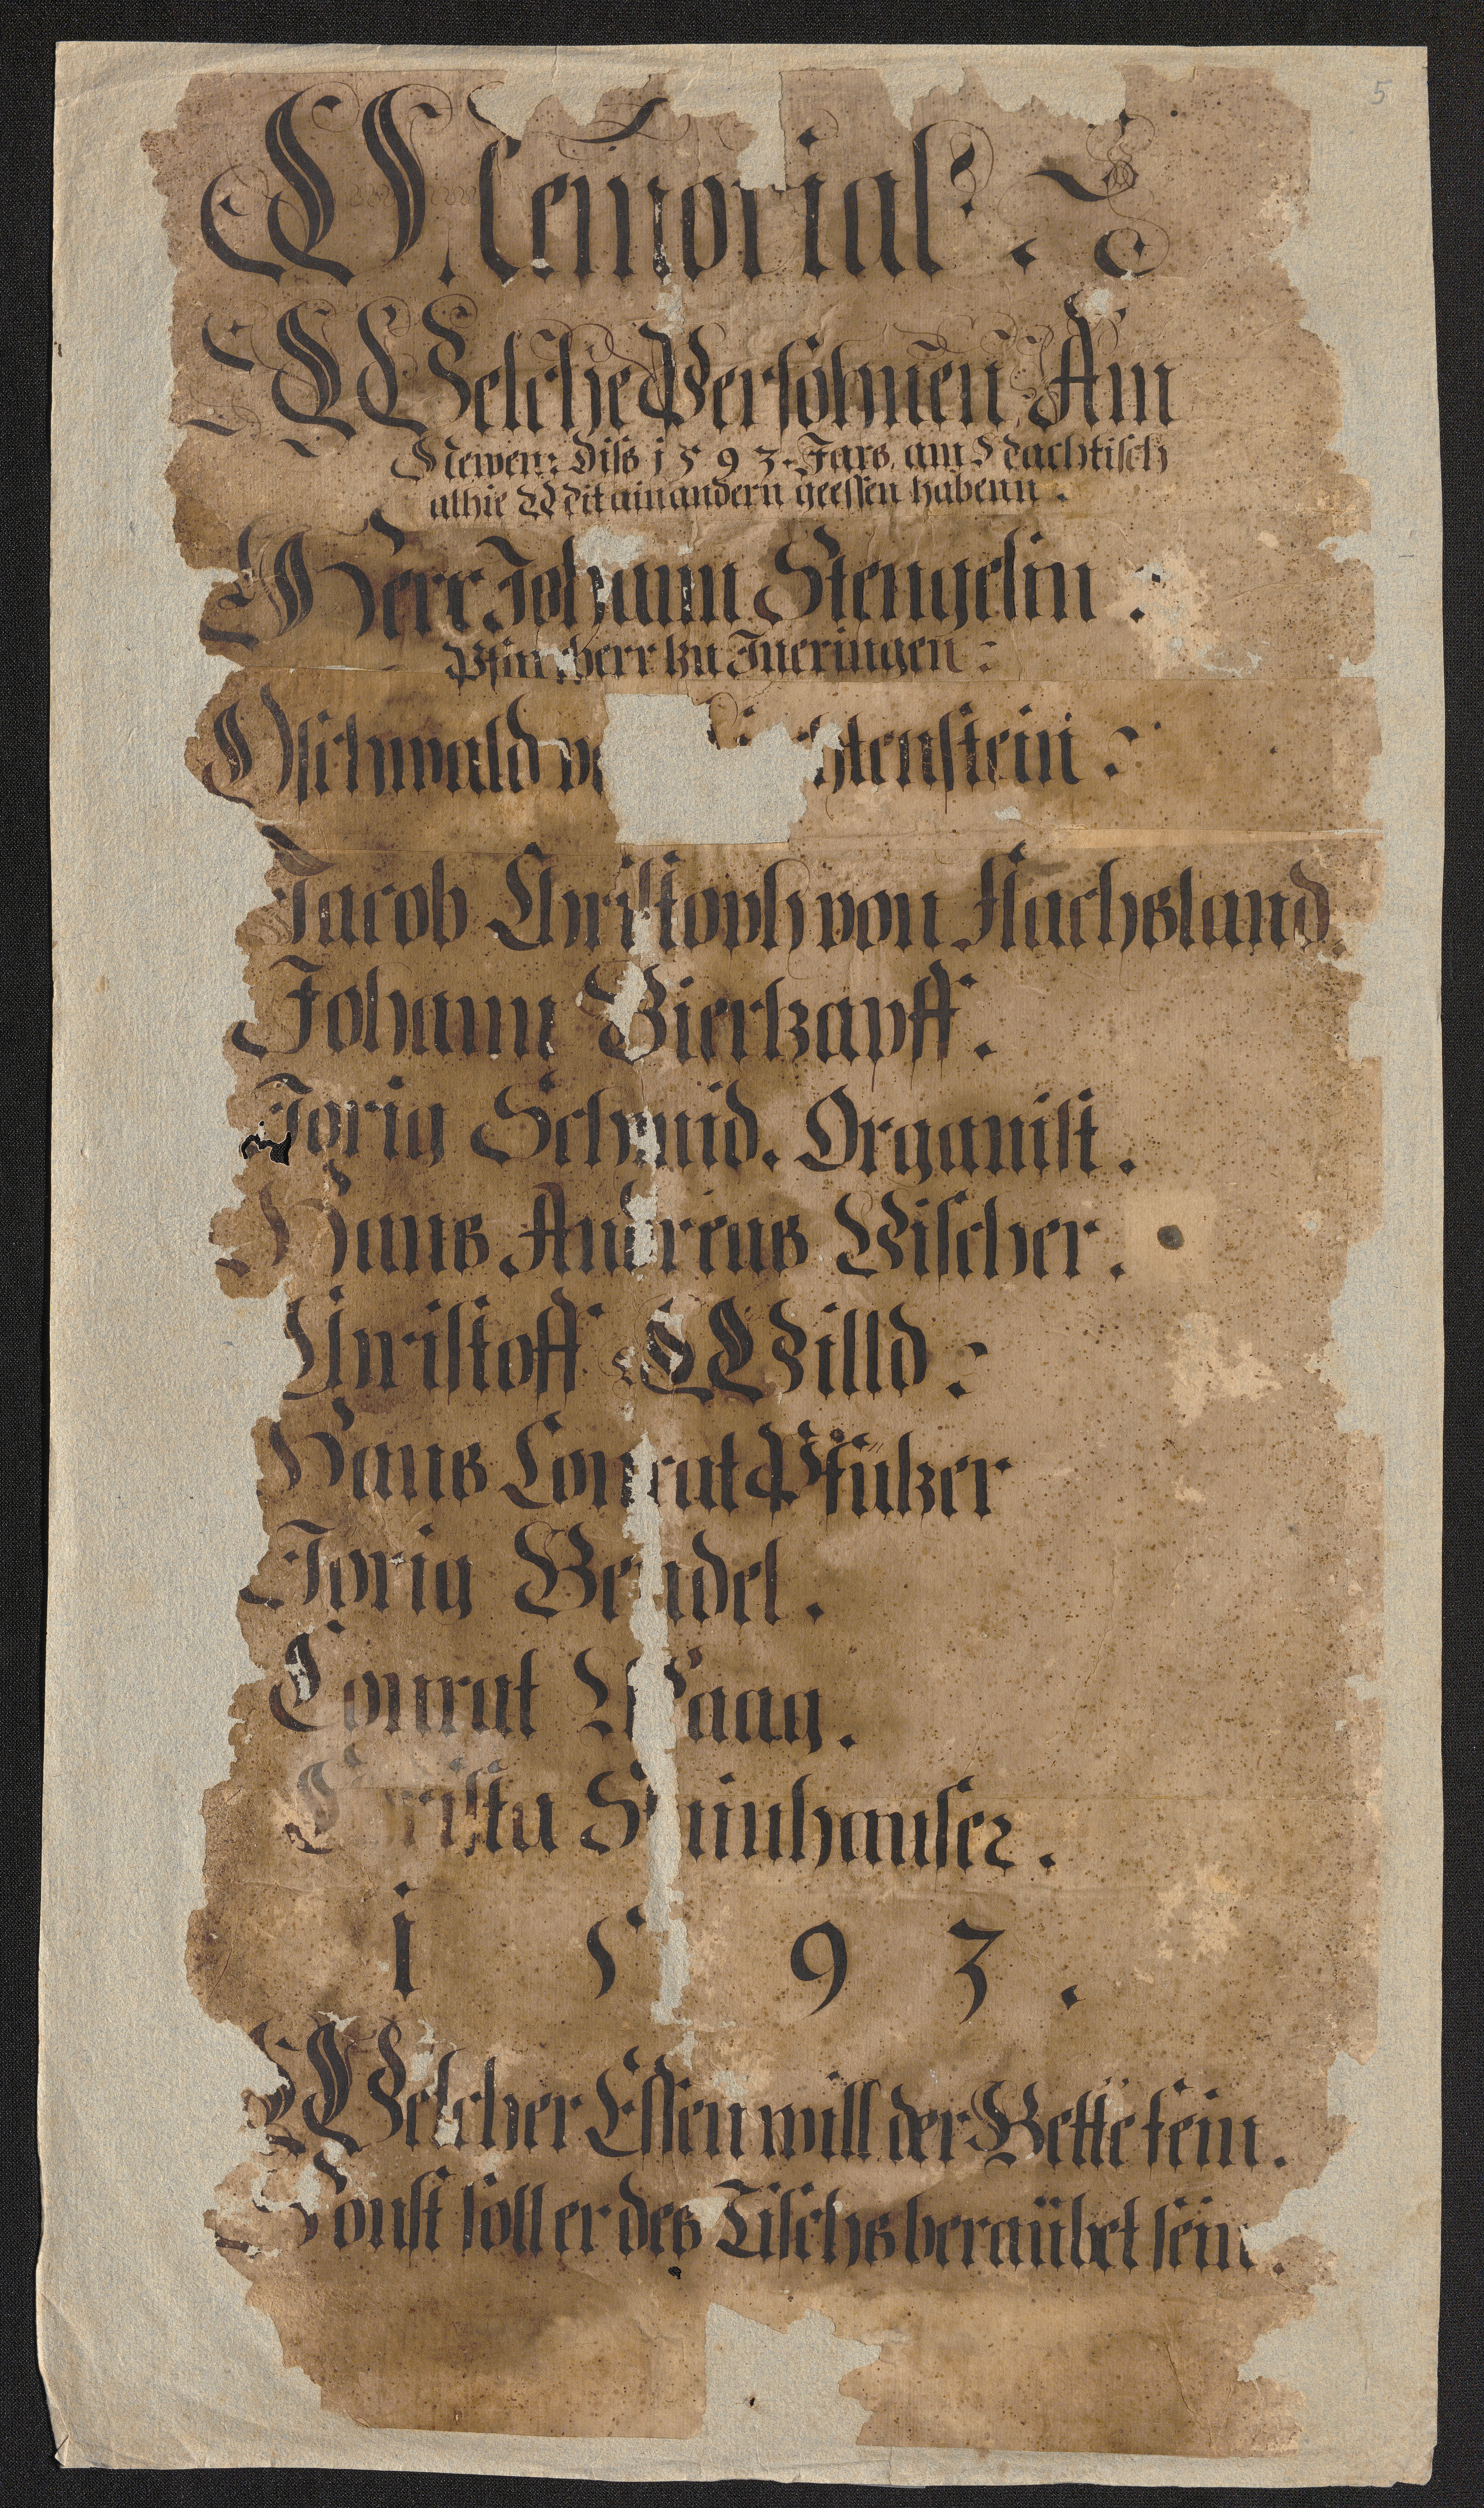 5
Memorial.
Welche Persohnen Am
Newen: Diss 1593. Jars. am Nachtisch
alhie Mit ainandern geessen habenn.
Herr Johann Stengelin:
Pfarrherr zu Jneringen:
Oschwald htenstein:
Jacob Christoph von Flachsland.
Johann Bierkapff.
Jorig Schmid. Organist.
Hans Andreas Vischer.
Christoff Willd:
Hans Conrat Pfützer
Jorig Bendel.
Conrat Waag.
Christa Stainhauser.
1593.
Welcher Essen will der Bette fein.
Sonst soll er des Tischs beraübet sein.